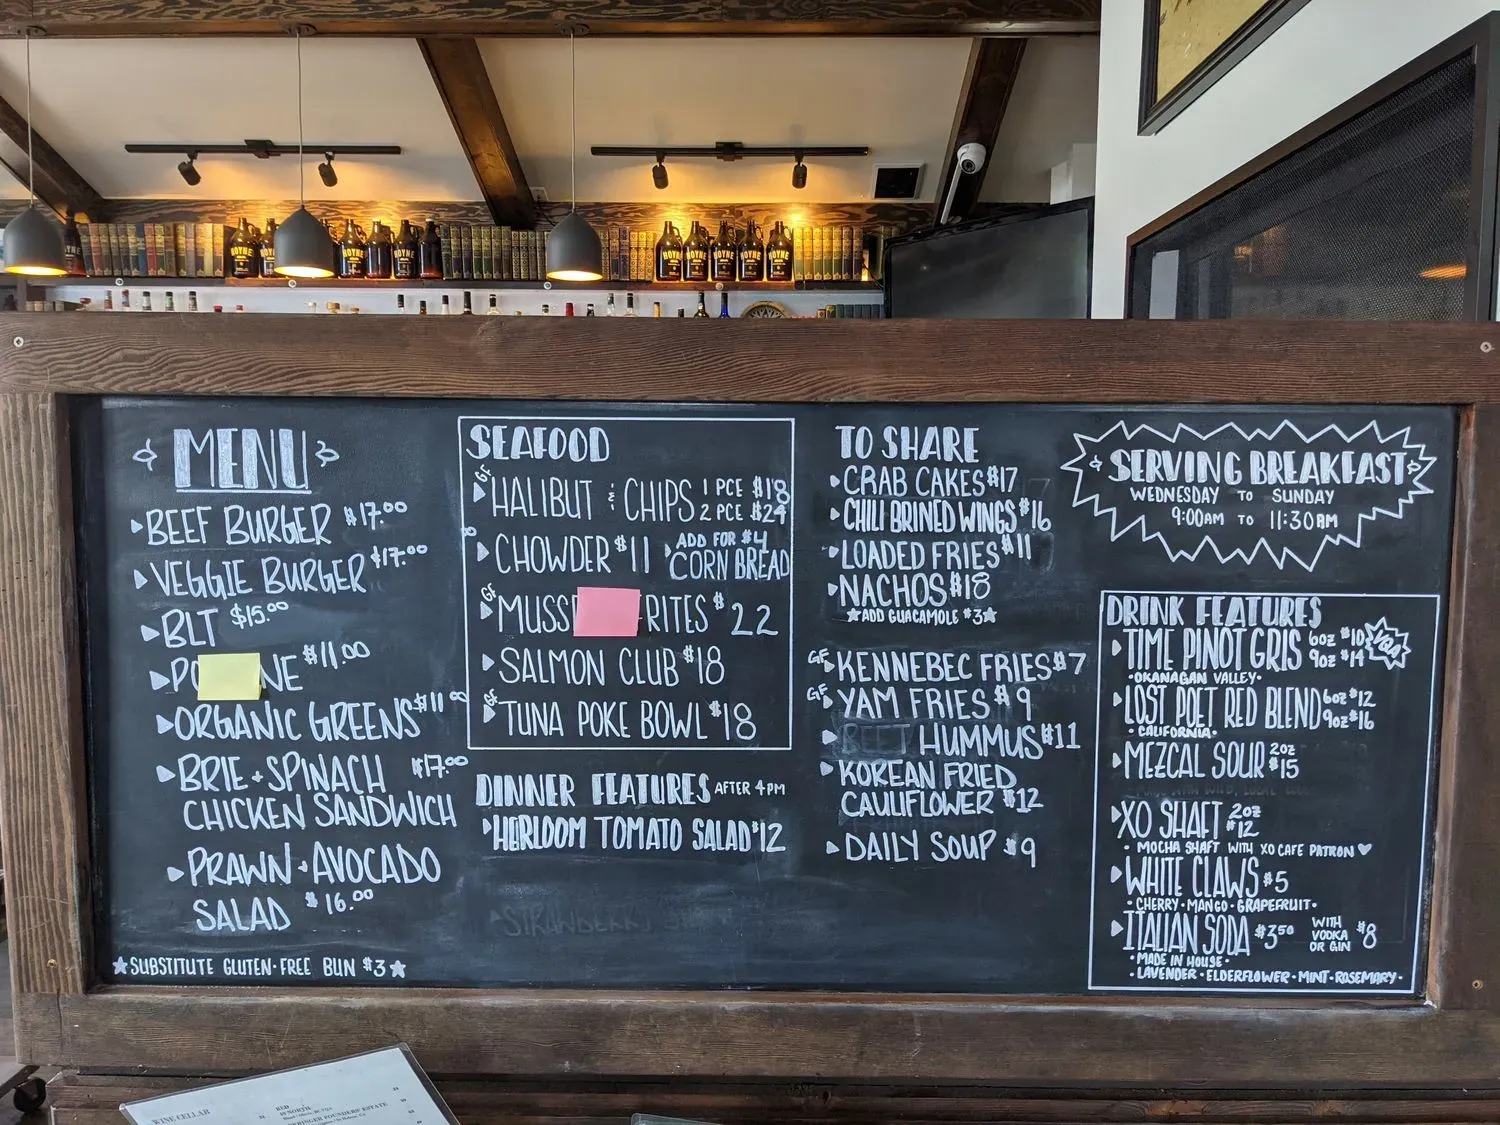 MENU
BEEF BURGER $17.00
VEGGIE BURGER $17.00
BLT $15.00
$11.00
ORGANIC GREENS $11.00
BRIE + SPINACH $17.00
CHICKEN SANDWICH
PRAWN + AVOCADO
SALAD $16.00
★SUBSTITUTE GLUTEN-FREE BUN $3★
SEAFOOD
GF HALIBUT & CHIPS 1 PCE $18
2 PCE $24
CHOWDER $11 ADD FOR $4
CORN BREAD
GF $22
SALMON CLUB $18
GF TUNA POKE BOWL $18
DINNER FEATURES AFTER 4PM
HEIRLOOM TOMATO SALAD $12
TO SHARE
CRAB CAKES $17
CHILI BRINED WINGS $16
LOADED FRIES $11
NACHOS $18
★ADD GUACAMOLE $3★
GF KENNEBEC FRIES $7
GF YAM FRIES $9
BEET HUMMUS $11
KOREAN FRIED
CAULIFLOWER $12
DAILY SOUP $9
SERVING BREAKFAST
WEDNESDAY TO SUNDAY
9:00AM TO 11:30AM
DRINK FEATURES
TIME PINOT GRIS 6oz $10
9oz $14
•OKANAGAN VALLEY•
LOST POET RED BLEND 6oz $12
9oz $16
•CALIFORNIA•
MEZCAL SOUR 2oz
$15
XO SHAFT 2oz
$12
•MOCHA SHAFT WITH XO CAFE PATRON♥
WHITE CLAWS $5
•CHERRY•MANGO•GRAPEFRUIT•
ITALIAN SODA $3.50 WITH VODKA OR GIN $8
•MADE IN HOUSE•
•LAVENDER•ELDERFLOWER•MINT•ROSEMARY•
HOYNE
HOYNE
HOYNE
HOYNE
HOYNE
HOYNE
HOYNE
HOYNE
WINE CELLAR
RED